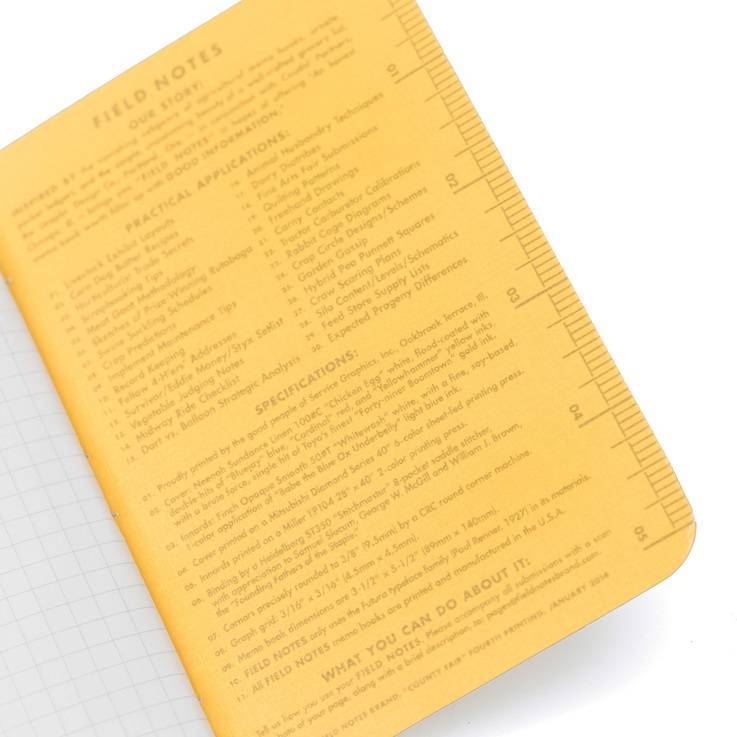 FIELD NOTES
OUR STORY:
INSPIRED BY the vanishing subgenre of agricultural memo books, ornate
pocket ledgers, and the simple, unassuming beauty of a well-crafted grocery list,
the Draplin Design Co., Portland, Ore. in conjunction with Coudal Partners,
Chicago, Ill. brings you "FIELD NOTES" in hopes of offering "An honest
memo book worth fillin' up with GOOD INFORMATION."
PRACTICAL APPLICATIONS:
01. Livestock Exhibit Layouts
02. Corn Dog Batter Recipes
03. Horticultural Trade Secrets
04. Scrapbooking Tips
05. Meat Goat Methodology
06. Sketches of Prize Winning Rutabaga
07. Swine Suckling Schedules
08. Crop Predictions
09. Implement Maintenance Tips
10. Record Keeping
11. Fellow 4-H'ers' Addresses
12. Survivor/Eddie Money/Styx Setlist
13. Vegetable Judging Notes
14. Midway Ride Checklist
15. Dart vs. Balloon Strategic Analysis
16. Animal Husbandry Techniques
17. Dairy Diatribes
18. Fine Arts Fair Submissions
19. Quilting Patterns
20. Freehand Drawings
21. Carny Contacts
22. Tractor Carburetor Calibrations
23. Rabbit Cage Diagrams
24. Crop Circle Designs/Schemes
25. Garden Gossip
26. Hybrid Pea Punnett Squares
27. Crow Scaring Plans
28. Silo Content/Levels/Schematics
29. Feed Store Supply Lists
30. Expected Progeny Differences
SPECIFICATIONS:
01. Proudly printed by the good people of Service Graphics, Inc., Oakbrook Terrace, Ill.
02. Cover: Neenah Sundance Linen 100#C "Chicken Egg" white, flood-coated with
double hits of "Bluejay" blue, "Cardinal" red, and "Yellowhammer" yellow inks,
with a brute force, single hit of Toyo's finest "Forty-niner Boomtown" gold ink.
03. Innards: Finch Opaque Smooth 50#T "Whitewash" white, with a fine, soy-based,
1-color application of "Babe the Blue Ox Underbelly" light blue ink.
04. Cover printed on a Mitsubishi Diamond Series 40" 6-color sheet-fed printing press.
05. Innards printed on a Miller TP104 28" x 40" 2-color printing press.
06. Binding by a Heidelberg ST350 "Stitchmaster" 8-pocket saddle stitcher,
with appreciation to Samuel Slocum, George W. McGill and William J. Brown,
the "Founding Fathers of the Staple."
07. Corners precisely rounded to 3/8" (9.5mm) by a CRC round corner machine.
08. Graph grid: 3/16" x 3/16" (4.5mm x 4.5mm).
09. Memo book dimensions are 3-1/2" x 5-1/2" (89mm x 140mm).
10. FIELD NOTES only uses the Futura typeface family (Paul Renner, 1927) in its materials.
11. All FIELD NOTES memo books are printed and manufactured in the U.S.A.
WHAT YOU CAN DO ABOUT IT:
Tell us how you use your FIELD NOTES. Please accompany all submissions with a scan
photo of your page, along with a brief description, to: pages@fieldnotesbrand.com.
FIELD NOTES BRAND. "COUNTY FAIR" FOURTH PRINTING, JANUARY 2014
01
02
03
04
05